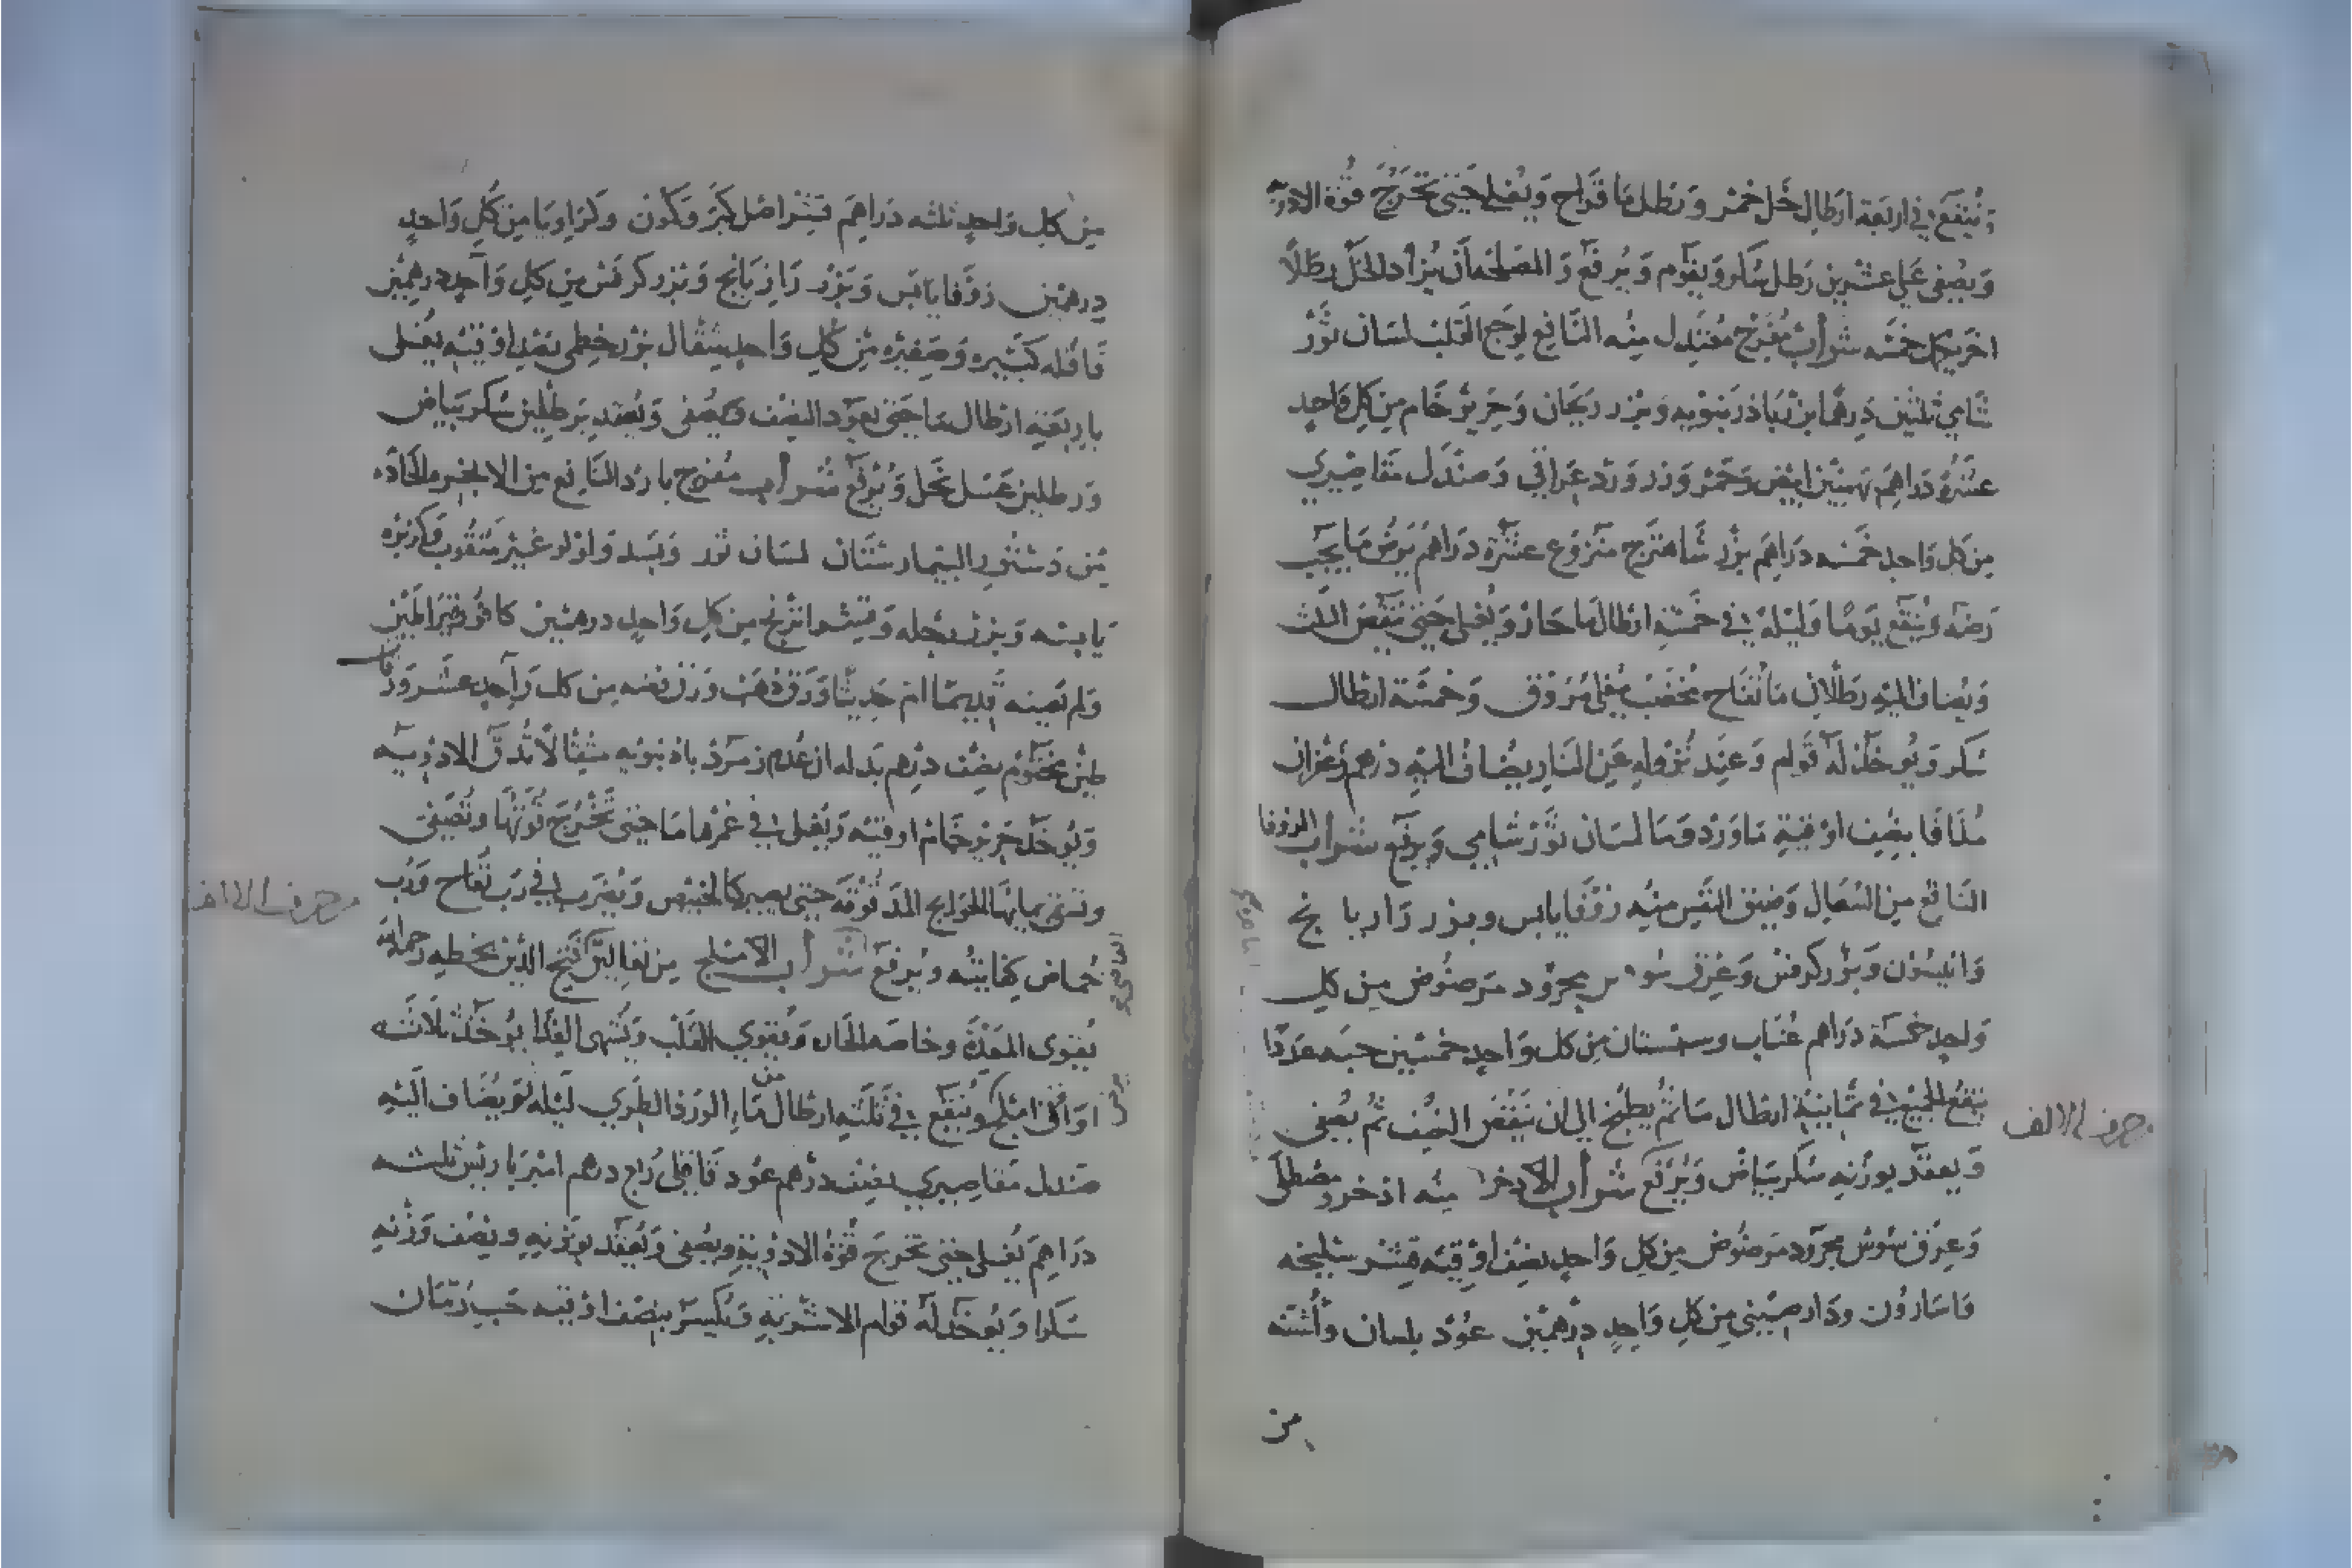 وينقع في اربعة ارطال خل خمر ورطل ما قراح ويغلى حتى تخرج قوة الادوية
ويصفى على عشرين رطل سكر ويقوم ويرفع والمصلحه ان يزاد الخل رطلا
اخر بكل خمسه شراب مفرح معتدل منه النافع لوجع القلب لسان ثور
شامي ثلثين درهما باذرنبويه وبزر ريحان وحرير خام من كل واحد
عشرة دراهم بهمنين ابيض وحمر وزر ورد عراقي وصندل مقاصيري
من كل واحد خمسه دراهم بزر شاهترج منزوع عشرة دراهم يرض ما يجب
رضه وينقع يوما وليلة في خمسة ارطال ما حار ويغلى حتى ينقص الثلث
ويضاف اليه رطلان ما تفاح مخضب مغلى مروق وخمسة ارطال
سكر ويوخذ له قوام وعند نزوله عن النار يضاف اليه درهم زعفران
مدافا بنصف اوقية ماورد وما لسان ثور شامي ويرفع شراب الزوفا
النافع من السعال وضيق النفس منه زوفا يابس وبزر رازيانج
وانيسون وبزر كرفس وعرق سوس مجرود مرضوض من كل
واحد خمسة دراهم عناب وسبستان من كل واحد خمسين حبه عددا
ينقع الجميع في ثمانية ارطال ما ثم يطبخ الى ان ينقص النصف ثم يصفى
ويعقد بوزنه سكر بياض ويرفع شراب الادخر منه اذخر ومصطكى
وعرق سوس مجرود مرضوض من كل واحد نصف اوقيه قشر سليخه
واسارون ودارصيني من كل واحد درهمين عود بلسان واشنه
من
حرف الالف
من كل واحد ثلثه دراهم قشر اصل كبر وكمون وكراويا من كل واحد
درهمين زوفا يابس وبزر رازيانج وبزر كرفس من كل واحد درهمين
قاقله كبيره وصغيره من كل واحد مثقال بزر خطمي نصف اوقيه يغلى
باربعة ارطال ما حتى يعود النصف ويصفى ويعقد برطلين سكر بياض
ورطلين عسل نحل ويرفع شراب مفرح بارد النافع من الابخره الحاده
من دستور البيمارستان لسان ثور وبسد ولولو غير مثقوب وكزبره
يابسه وبزر بجله وقشر اترنج من كل واحد درهمين كافور قيراطين
ولم نعينه قديما ام حديثا ورق ذهب وورق فضه من كل واحد عشر ورقات
طين مختوم نصف درهم بدله ان عدم زمرد باذنبويه مثقالا تدق الادويه
ويوخذ حرير خام اوقيه ويغلى في غمرها ما حتى تخرج قوتها وتصفى
وتسقى بمايها الحوايج المدقوقة حتى يصير كالخبيص ويضرب في رب تفاح ورب
حماض كفايته ويرفع شراب الاملج من نقاليق فتح الدين بخطه رحمه الله
يقوي المعدة وخاصه الحاره ويقوي القلب ويشهى الغذا يوخذ ثلاثه
اواقى املج وينقع في ثلثة ارطال من ماء الورد الطري ليله ثم يضاف اليه
صندل مقاصيري نصف درهم عود قاقلى زاج درهم امبرباريس ثلثه
دراهم يغلى حتى تخرج قوة الادوية ويصفى ويعقد بوزنه ونصف وزنه
سكرا ويوخذ له قوام الاشربة وتكيسر بنصف اوقيه حب رمان
حرف الالف